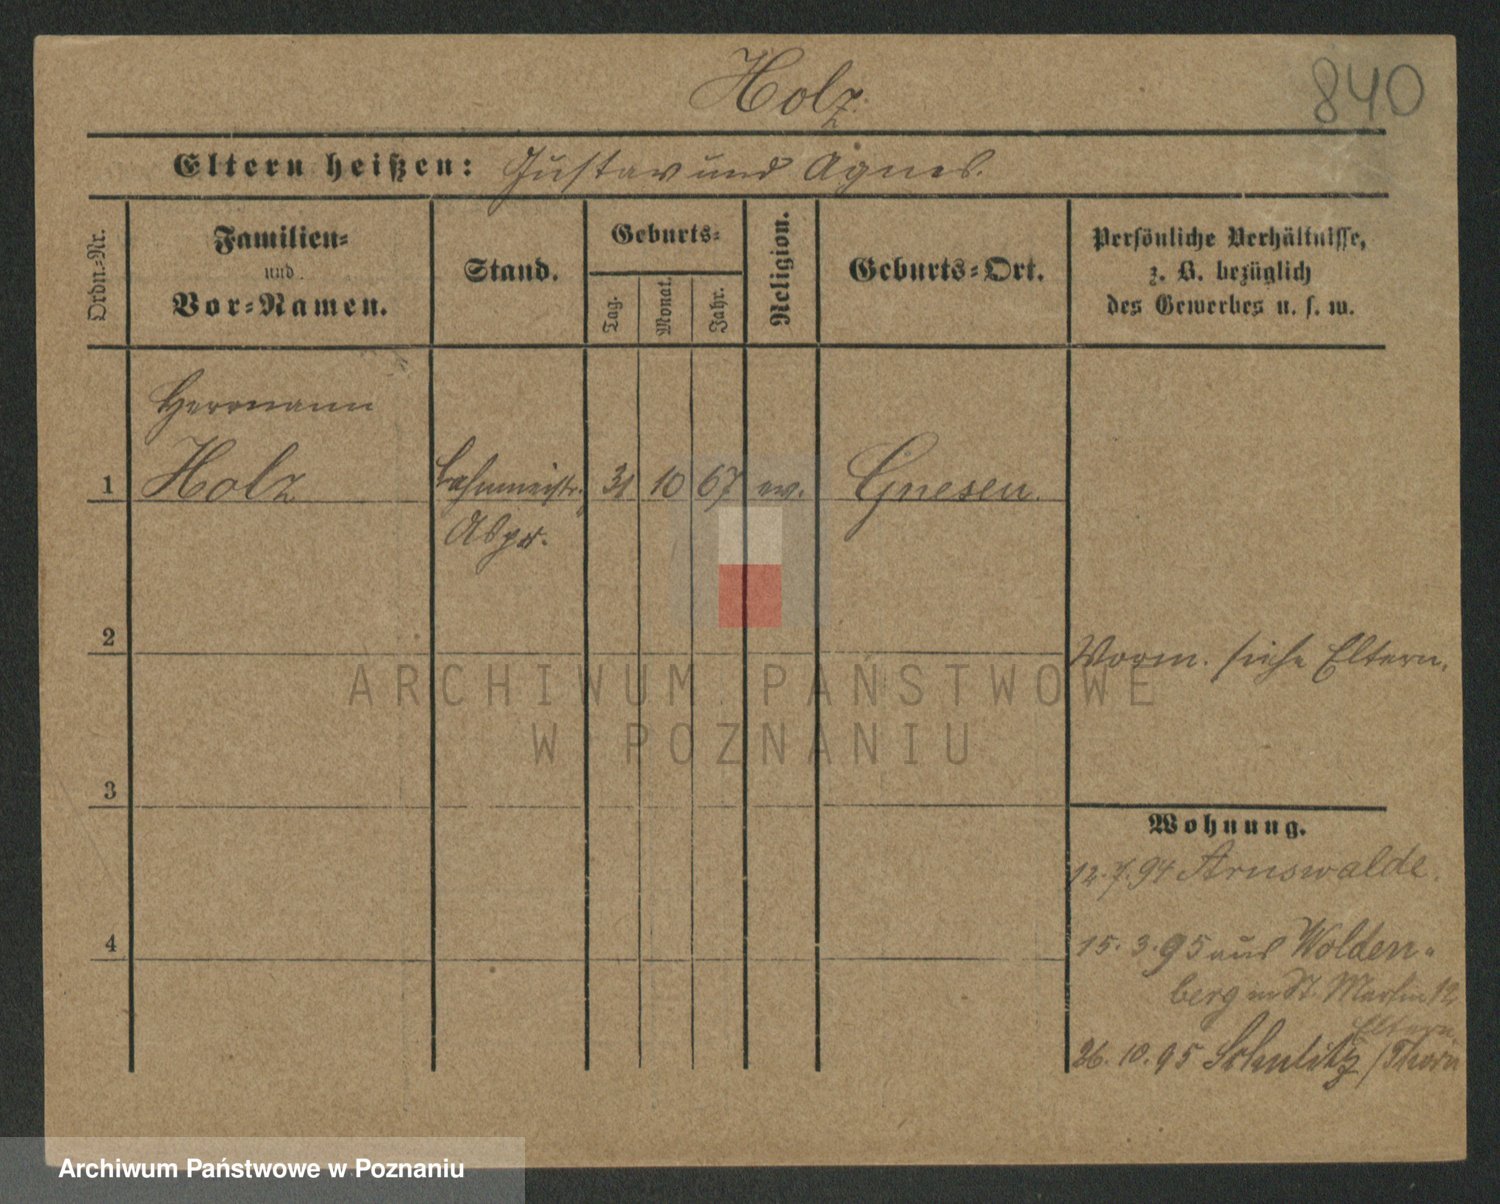 Holz
840
Eltern heißen: Gustav und Agnes.
Ordn.-Nr.
Familien-
und
Vor-Namen.
Stand.
Geburts-
Tag.
Monat.
Jahr.
Religion.
Geburts-Ort.
Persönliche Verhältnisse,
z. B. bezüglich
des Gewerbes u. s. w.
Herrmann
1 Holz Bahnmeistr. 31 10 67 ev. Gnesen.
Aspr.
2
Vorm. siehe Eltern.
ARCHIWUM PAŃSTWOWE
W POZNANIU
3
Wohnung.
12.7.94 Arnswalde.
4
15.3.95 aus Wolden-
berg in St. Martin 12
Eltern
26.10.95 Schulitz / Thorn
Archiwum Państwowe w Poznaniu